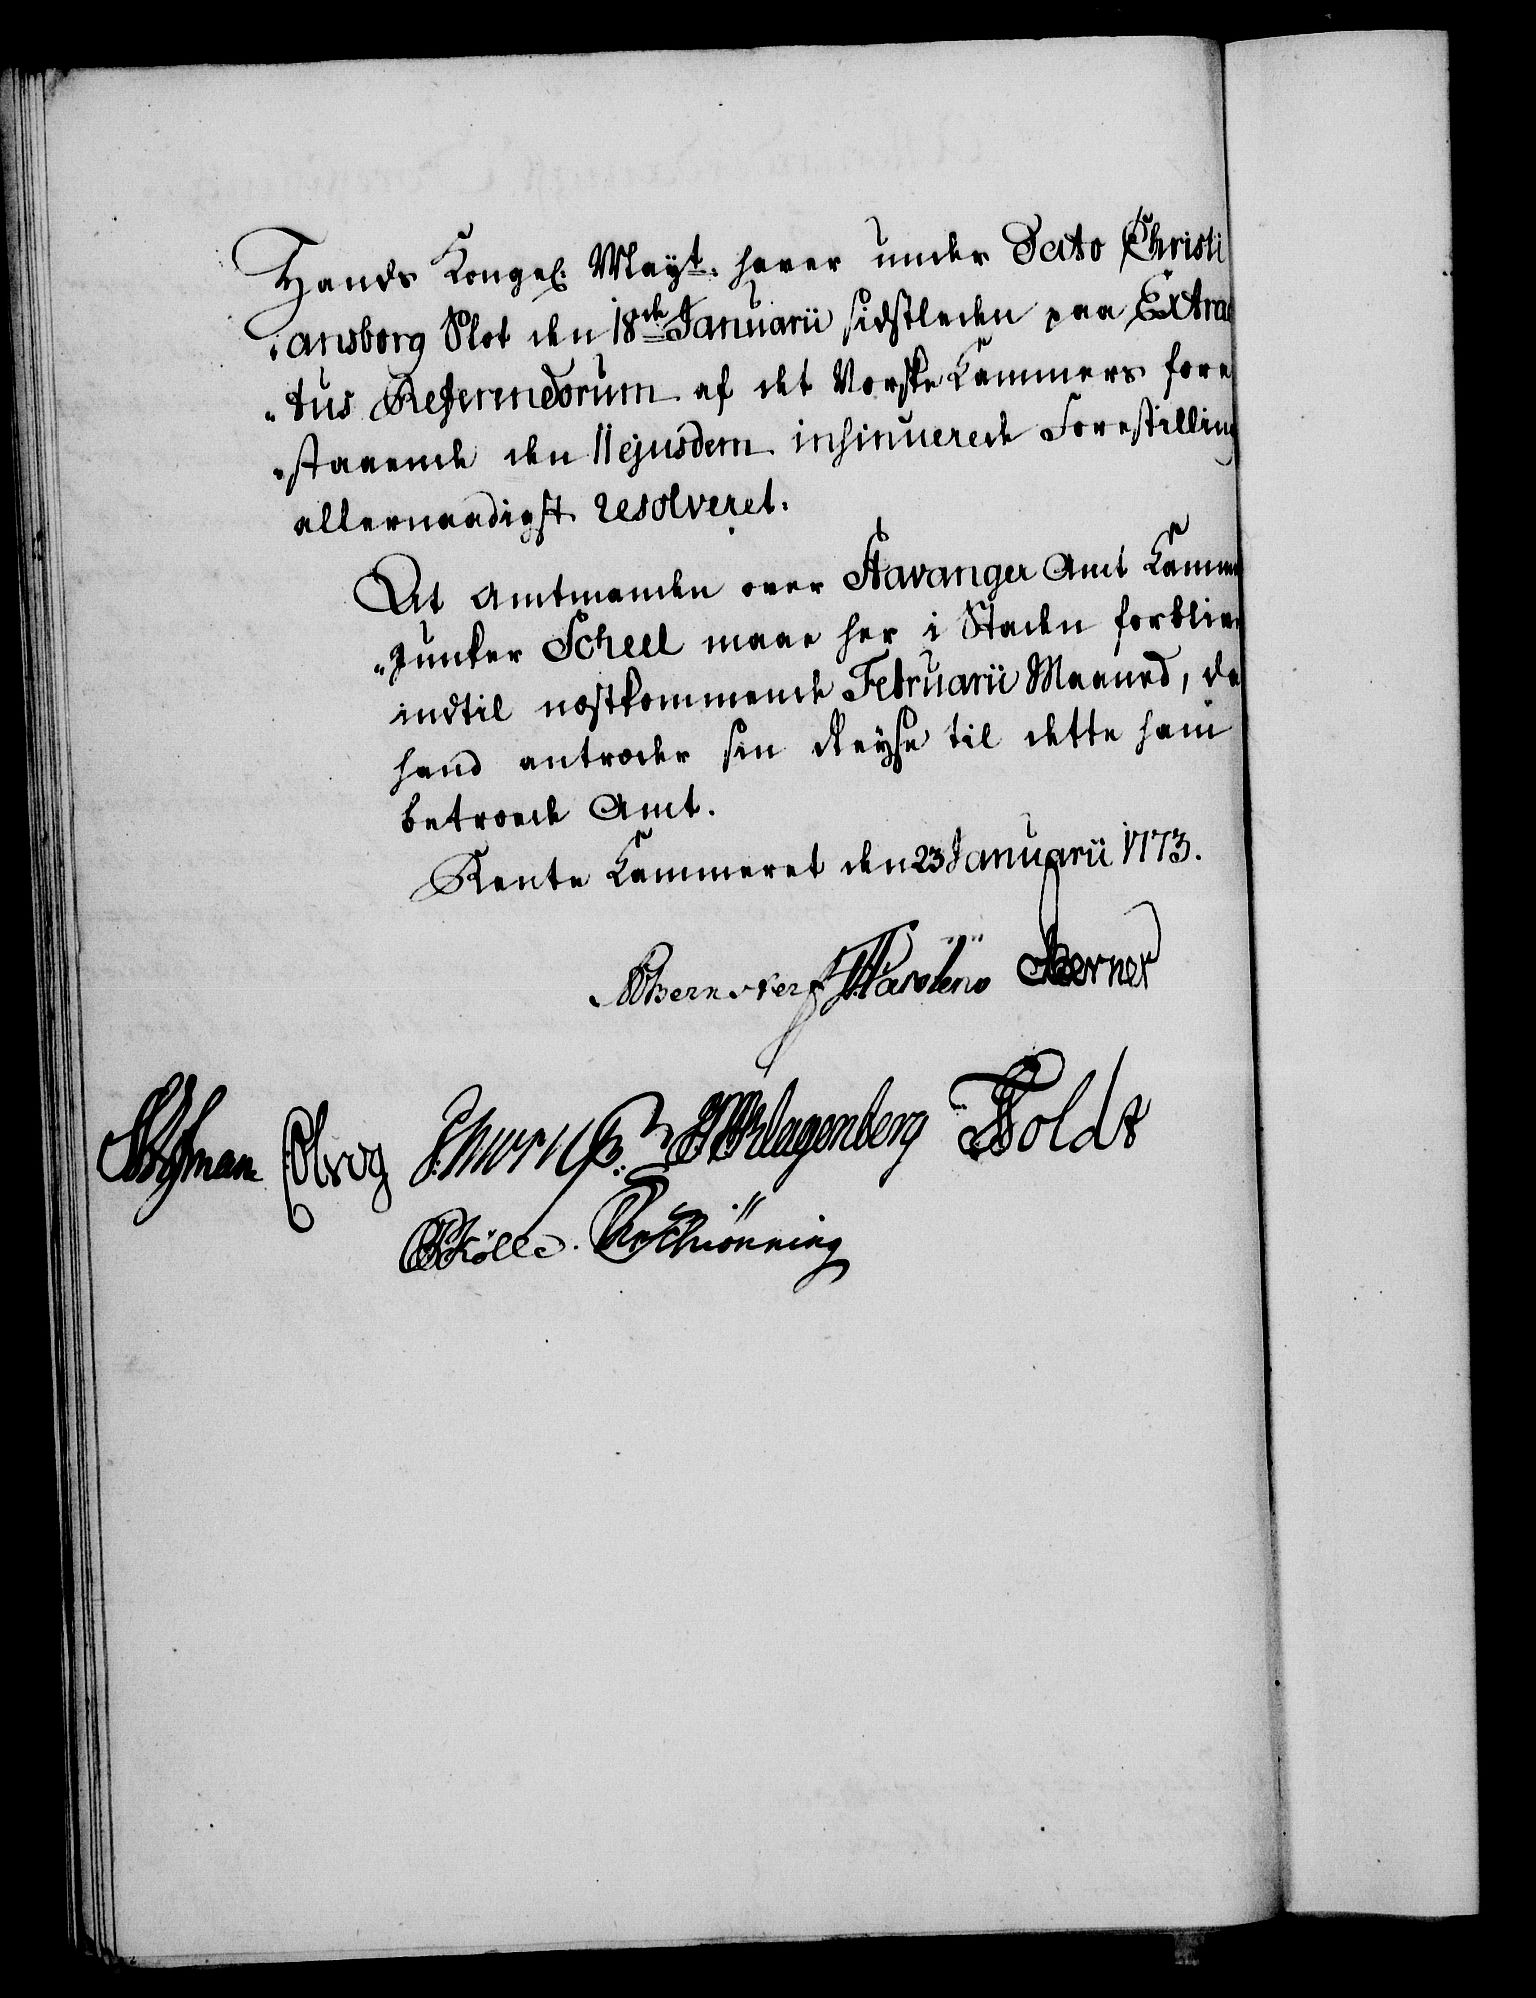 Hands Kongel: Mayt. haver under Dato Christi
„ansborg Slot den 18de Januarii sidstleden paa Extrac
„tus Referendorum af det Norske Kammers fore
„staaende den 11 ejusdem insinuerede Forestilling
allernaadigst resolveret.
At Amtmanden over Stavanger Amt Kammer
„Junker Scheel maae her i Staden forblive
indtil næstkommende Februarii Maaned, da
hand antræder sin Reyse til dette ham
betroede Amt.
Rente Kammeret den 23 Januarii 1773.
Berner
Olrog Klagenberg Holdt
Schiönning